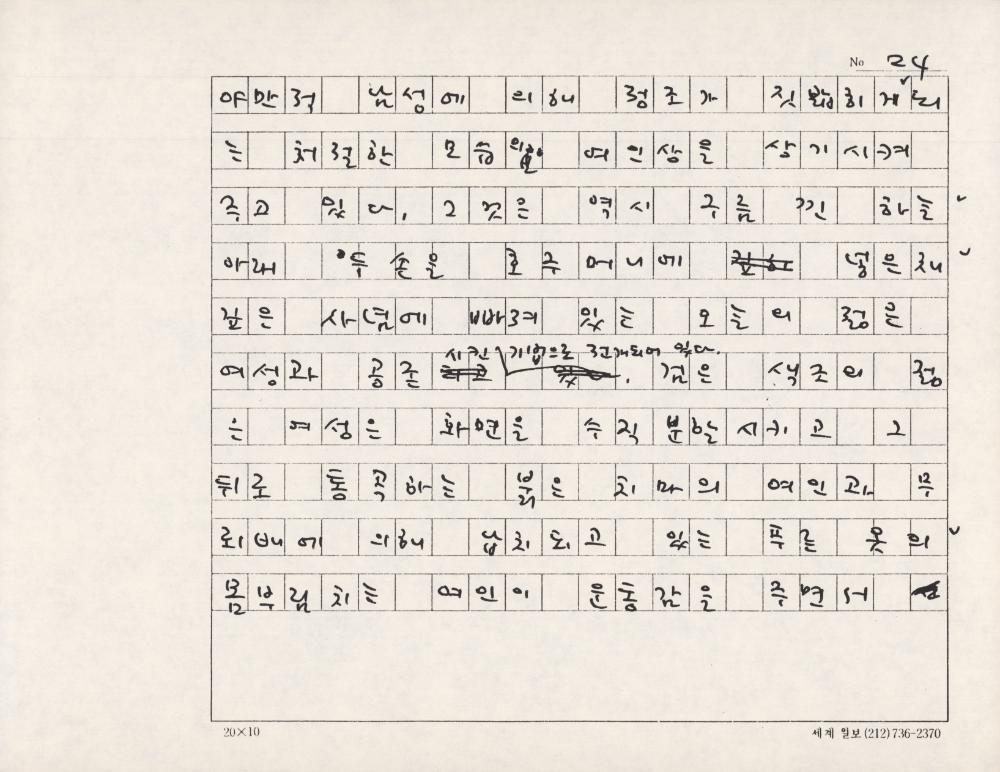 No 24
야만적 남성에 의해 정조가 짓밟히게 되
는 처절한 모습의 여인상을 상기시켜
주고 있다. 그것은 역시 구름 낀 하늘
아래 두 손을 호주머니에 넣은 채
깊은 사념에 빠져 있는 오늘의 젊은
시킨 기법으로 전개되어 있다.
여성과 공존 검은 색조의 젊
은 여성은 화면을 수직 분할 시키고 그
뒤로 통곡하는 붉은 치마의 여인과 무
뢰배에 의해 납치되고 있는 푸른 옷의
몸부림치는 여인이 운동감을 주면서
20×10
세계일보 (212) 736-2370